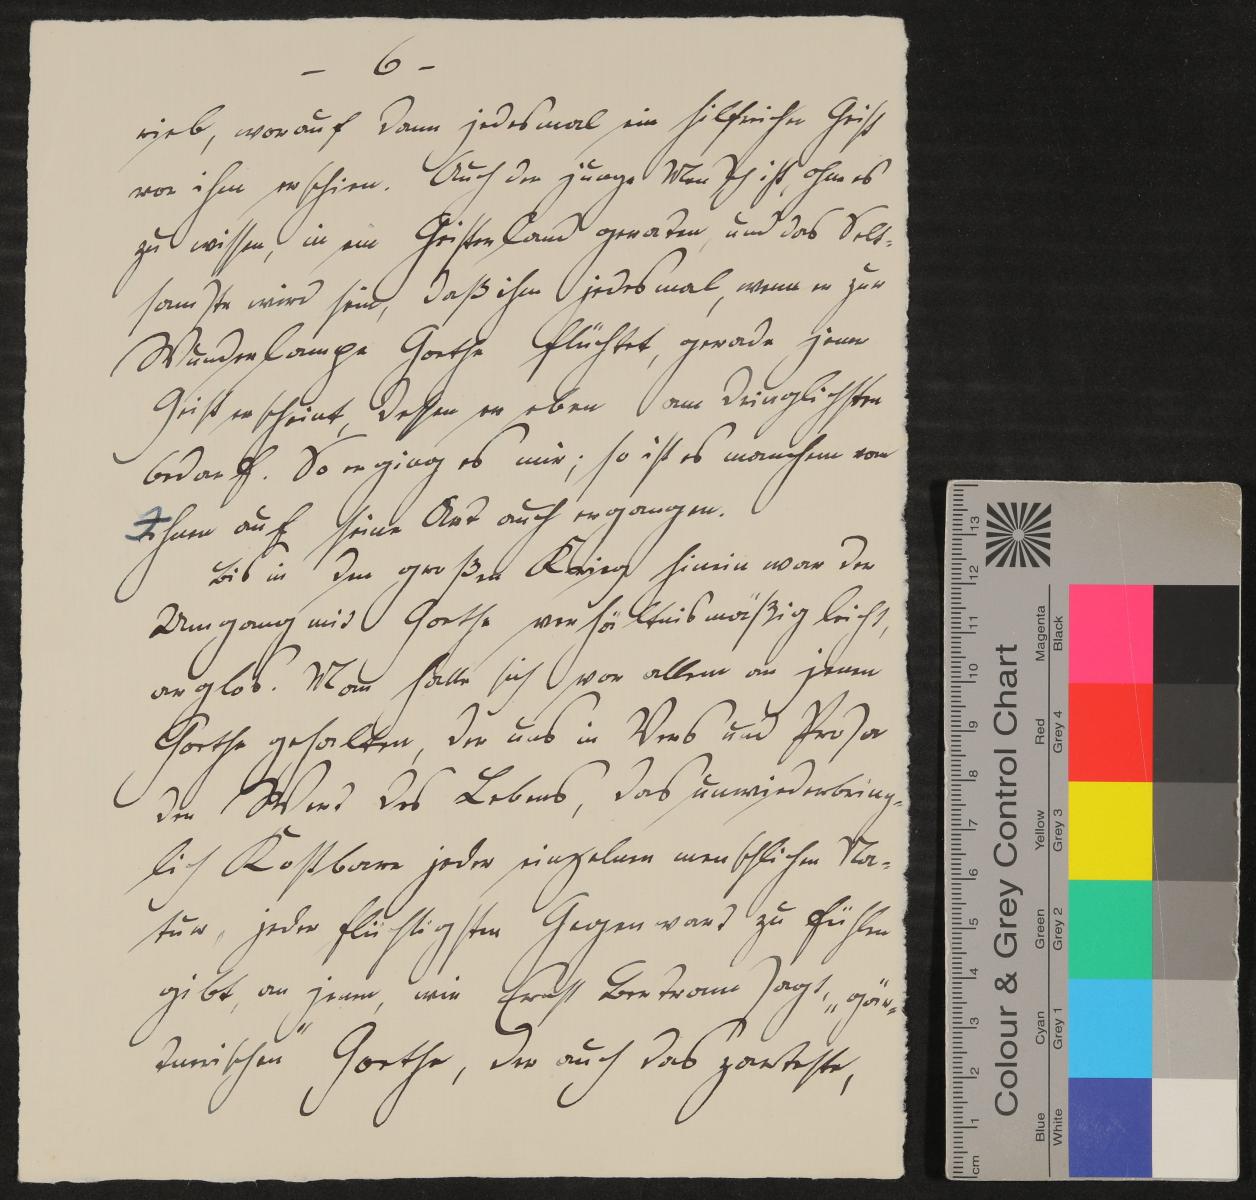 - 6 -
rieb, worauf dann jedesmal ein hilfreicher Geist
vor ihm erschien. Auch der junge Mensch ist, ohne es
zu wissen, in ein Geisterland geraten, und das Selt-
samste wird sein, daß ihm jedesmal, wenn er zur
Wunderlampe Goethe flüchtet, gerade jener
Geist erscheint, dessen er eben am dringlichsten
bedarf. So erging es mir; so ist es manchem von
Ihnen auf seine Art auch ergangen.
Bis in den großen Krieg hinein war der
Umgang mit Goethe verhältnismäßig leicht,
arglos. Man hatte sich vor allem an jenen
Goethe gehalten, der uns in Vers und Prosa
den Wert des Lebens, das unwiederbring-
lich Kostbare jeder einzelnen menschlichen Na-
tur, jeder flüchtigsten Gegenwart zu fühlen
gibt, an jenen, wie Ernst Bertram sagt, „gär-
tnerischen" Goethe, der auch das zarteste,
Colour & Grey Control Chart
Blue Cyan Green Yellow Red Magenta
White Grey 1 Grey 2 Grey 3 Grey 4 Black
cm 1 2 3 4 5 6 7 8 9 10 11 12 13